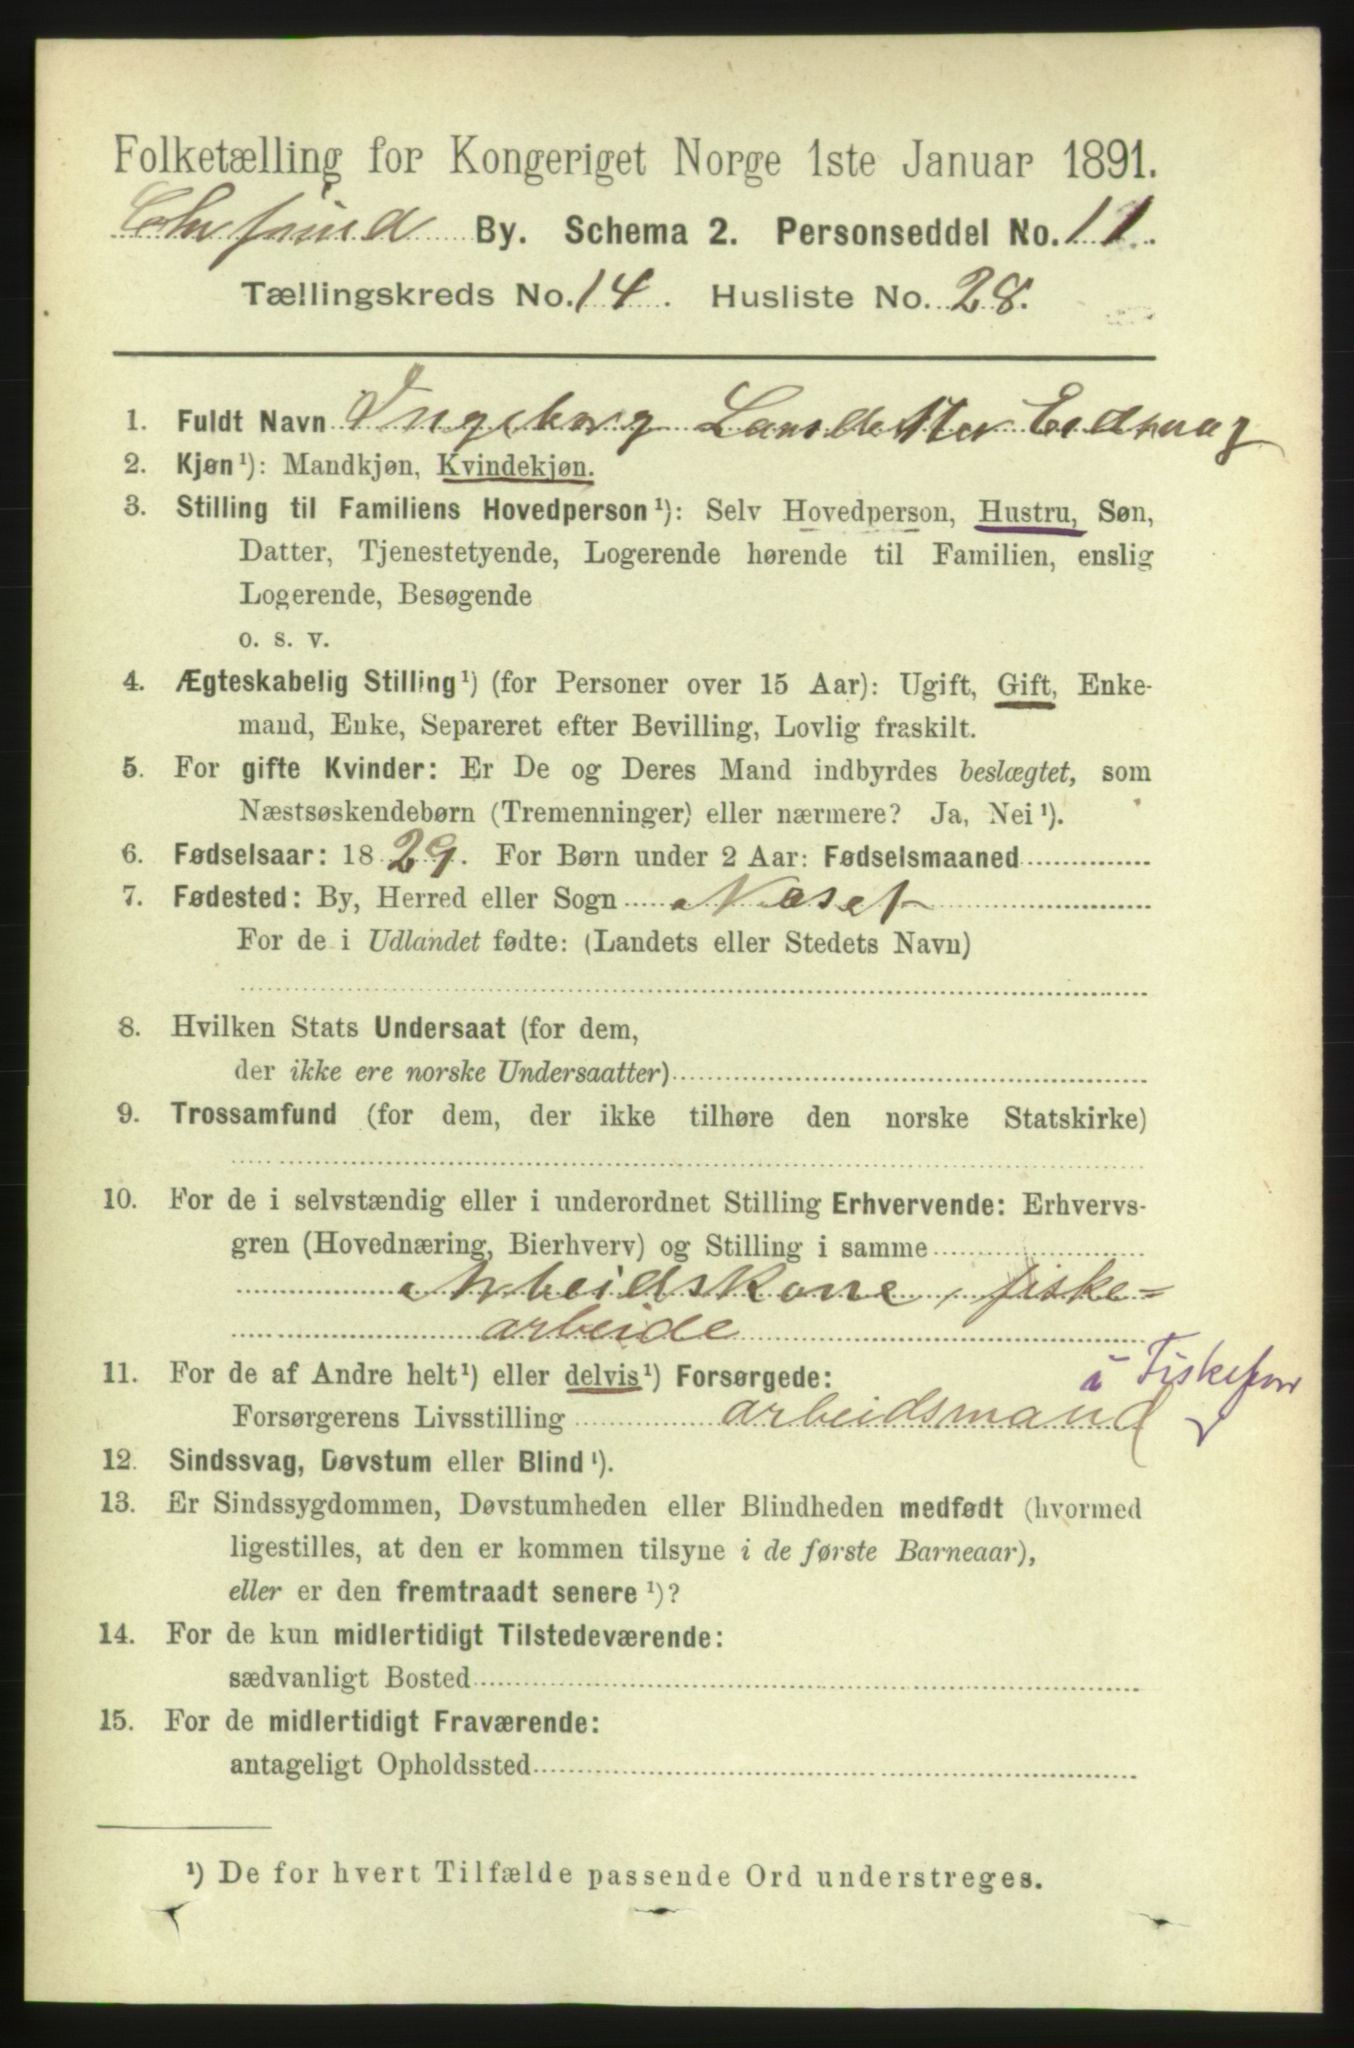 Folketælling for Kongeriget Norge 1ste Januar 1891.
Chrsund By. Schema 2. Personseddel No. 11.
Tællingskreds No. 14. Husliste No. 28.
1. Fuldt Navn Ingeborg Larsdatter Eidsvag
2. Kjøn¹): Mandkjøn, Kvindekjøn.
3. Stilling til Familiens Hovedperson¹): Selv Hovedperson, Hustru, Søn,
Datter, Tjenestetyende, Logerende hørende til Familien, enslig
Logerende, Besøgende
o. s. v.
4. Ægteskabelig Stilling¹) (for Personer over 15 Aar): Ugift, Gift, Enke-
mand, Enke, Separeret efter Bevilling, Lovlig fraskilt.
5. For gifte Kvinder: Er De og Deres Mand indbyrdes beslægtet, som
Næstsøskendebørn (Tremenninger) eller nærmere? Ja, Nei¹).
6. Fødselsaar: 1829. For Børn under 2 Aar: Fødselsmaaned
7. Fødested: By, Herred eller Sogn Næset
For de i Udlandet fødte: (Landets eller Stedets Navn)
8. Hvilken Stats Undersaat (for dem,
der ikke ere norske Undersaatter)
9. Trossamfund (for dem, der ikke tilhøre den norske Statskirke)
10. For de i selvstændig eller i underordnet Stilling Erhvervende: Erhvervs-
gren (Hovednæring, Bierhverv) og Stilling i samme
Arbeidskone, fiske=
arbeide
11. For de af Andre helt¹) eller delvis¹) Forsørgede:
i Fiskeforr
Forsørgerens Livsstilling arbeidsmand
12. Sindssvag, Døvstum eller Blind¹).
13. Er Sindssygdommen, Døvstumheden eller Blindheden medfødt (hvormed
ligestilles, at den er kommen tilsyne i de første Barneaar),
eller er den fremtraadt senere¹)?
14. For de kun midlertidigt Tilstedeværende:
sædvanligt Bosted
15. For de midlertidigt Fraværende:
antageligt Opholdssted
¹) De for hvert Tilfælde passende Ord understreges.